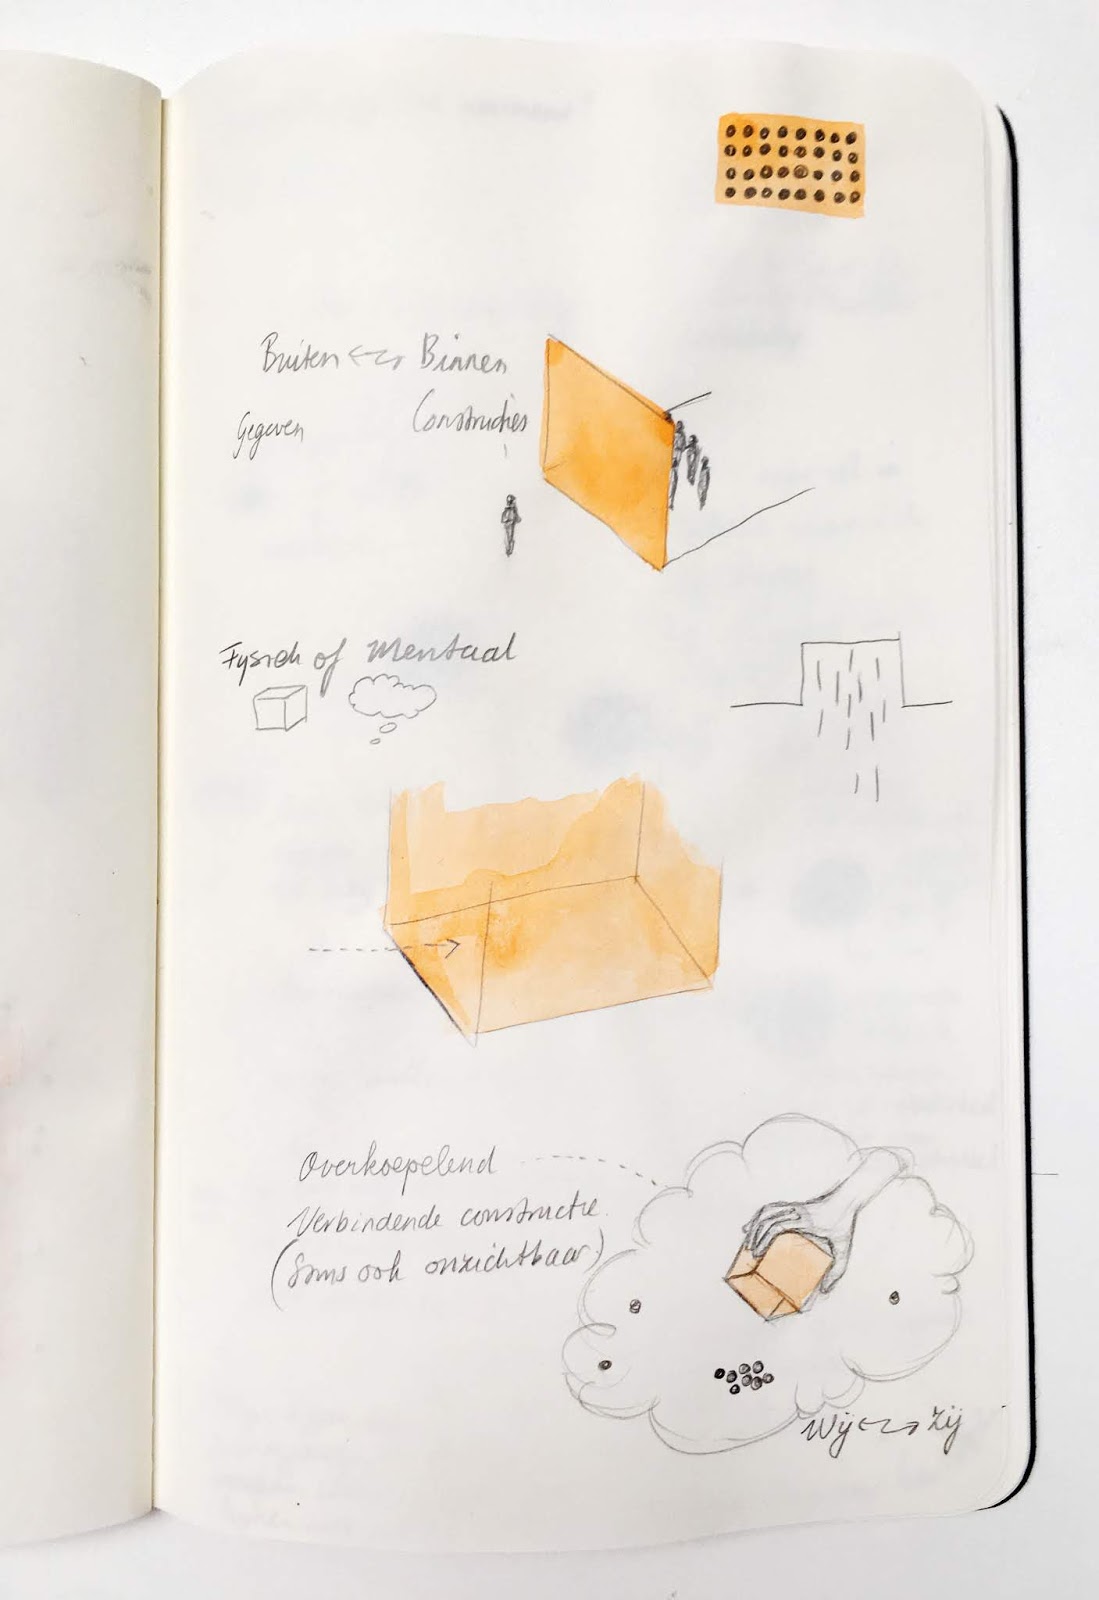 Buiten <-> Binnen
Gegeven Constructies
Fysiek of Mentaal
Overkoepelend
Verbindende constructie.
(Soms ook onzichtbaar)
Wij <-> Zij